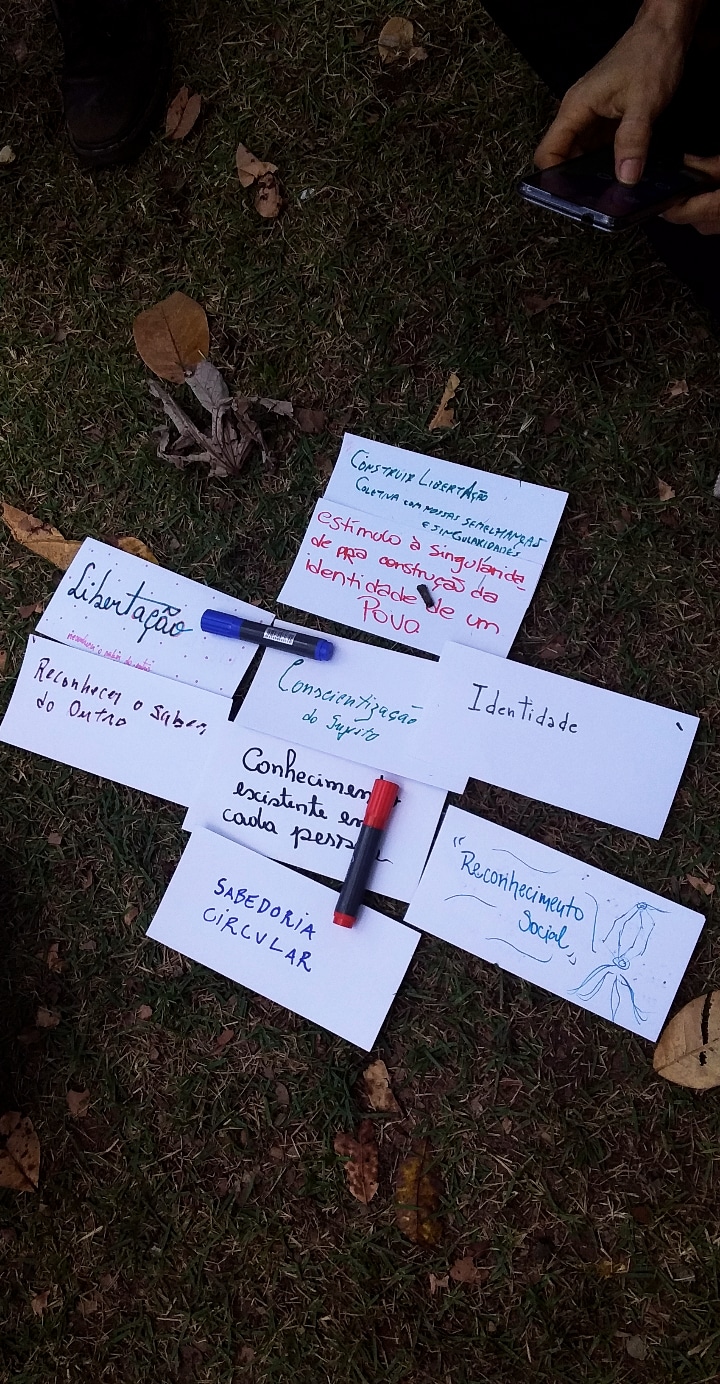 CONSTRUIR LIBERTAÇÃO
COLETIVA COM NOSSAS SEMELHANÇAS
E SINGULARIDADES
estímulo à singularida-
de pra construção da
identidade de um
Povo
Libertação
Reconhecer o Saber
do Outro
Conscientização
do Sujeito
Identidade
Conhecimen
existente em
cada pessoa
"Reconhecimento
Social"
SABEDORIA
CIRCULAR